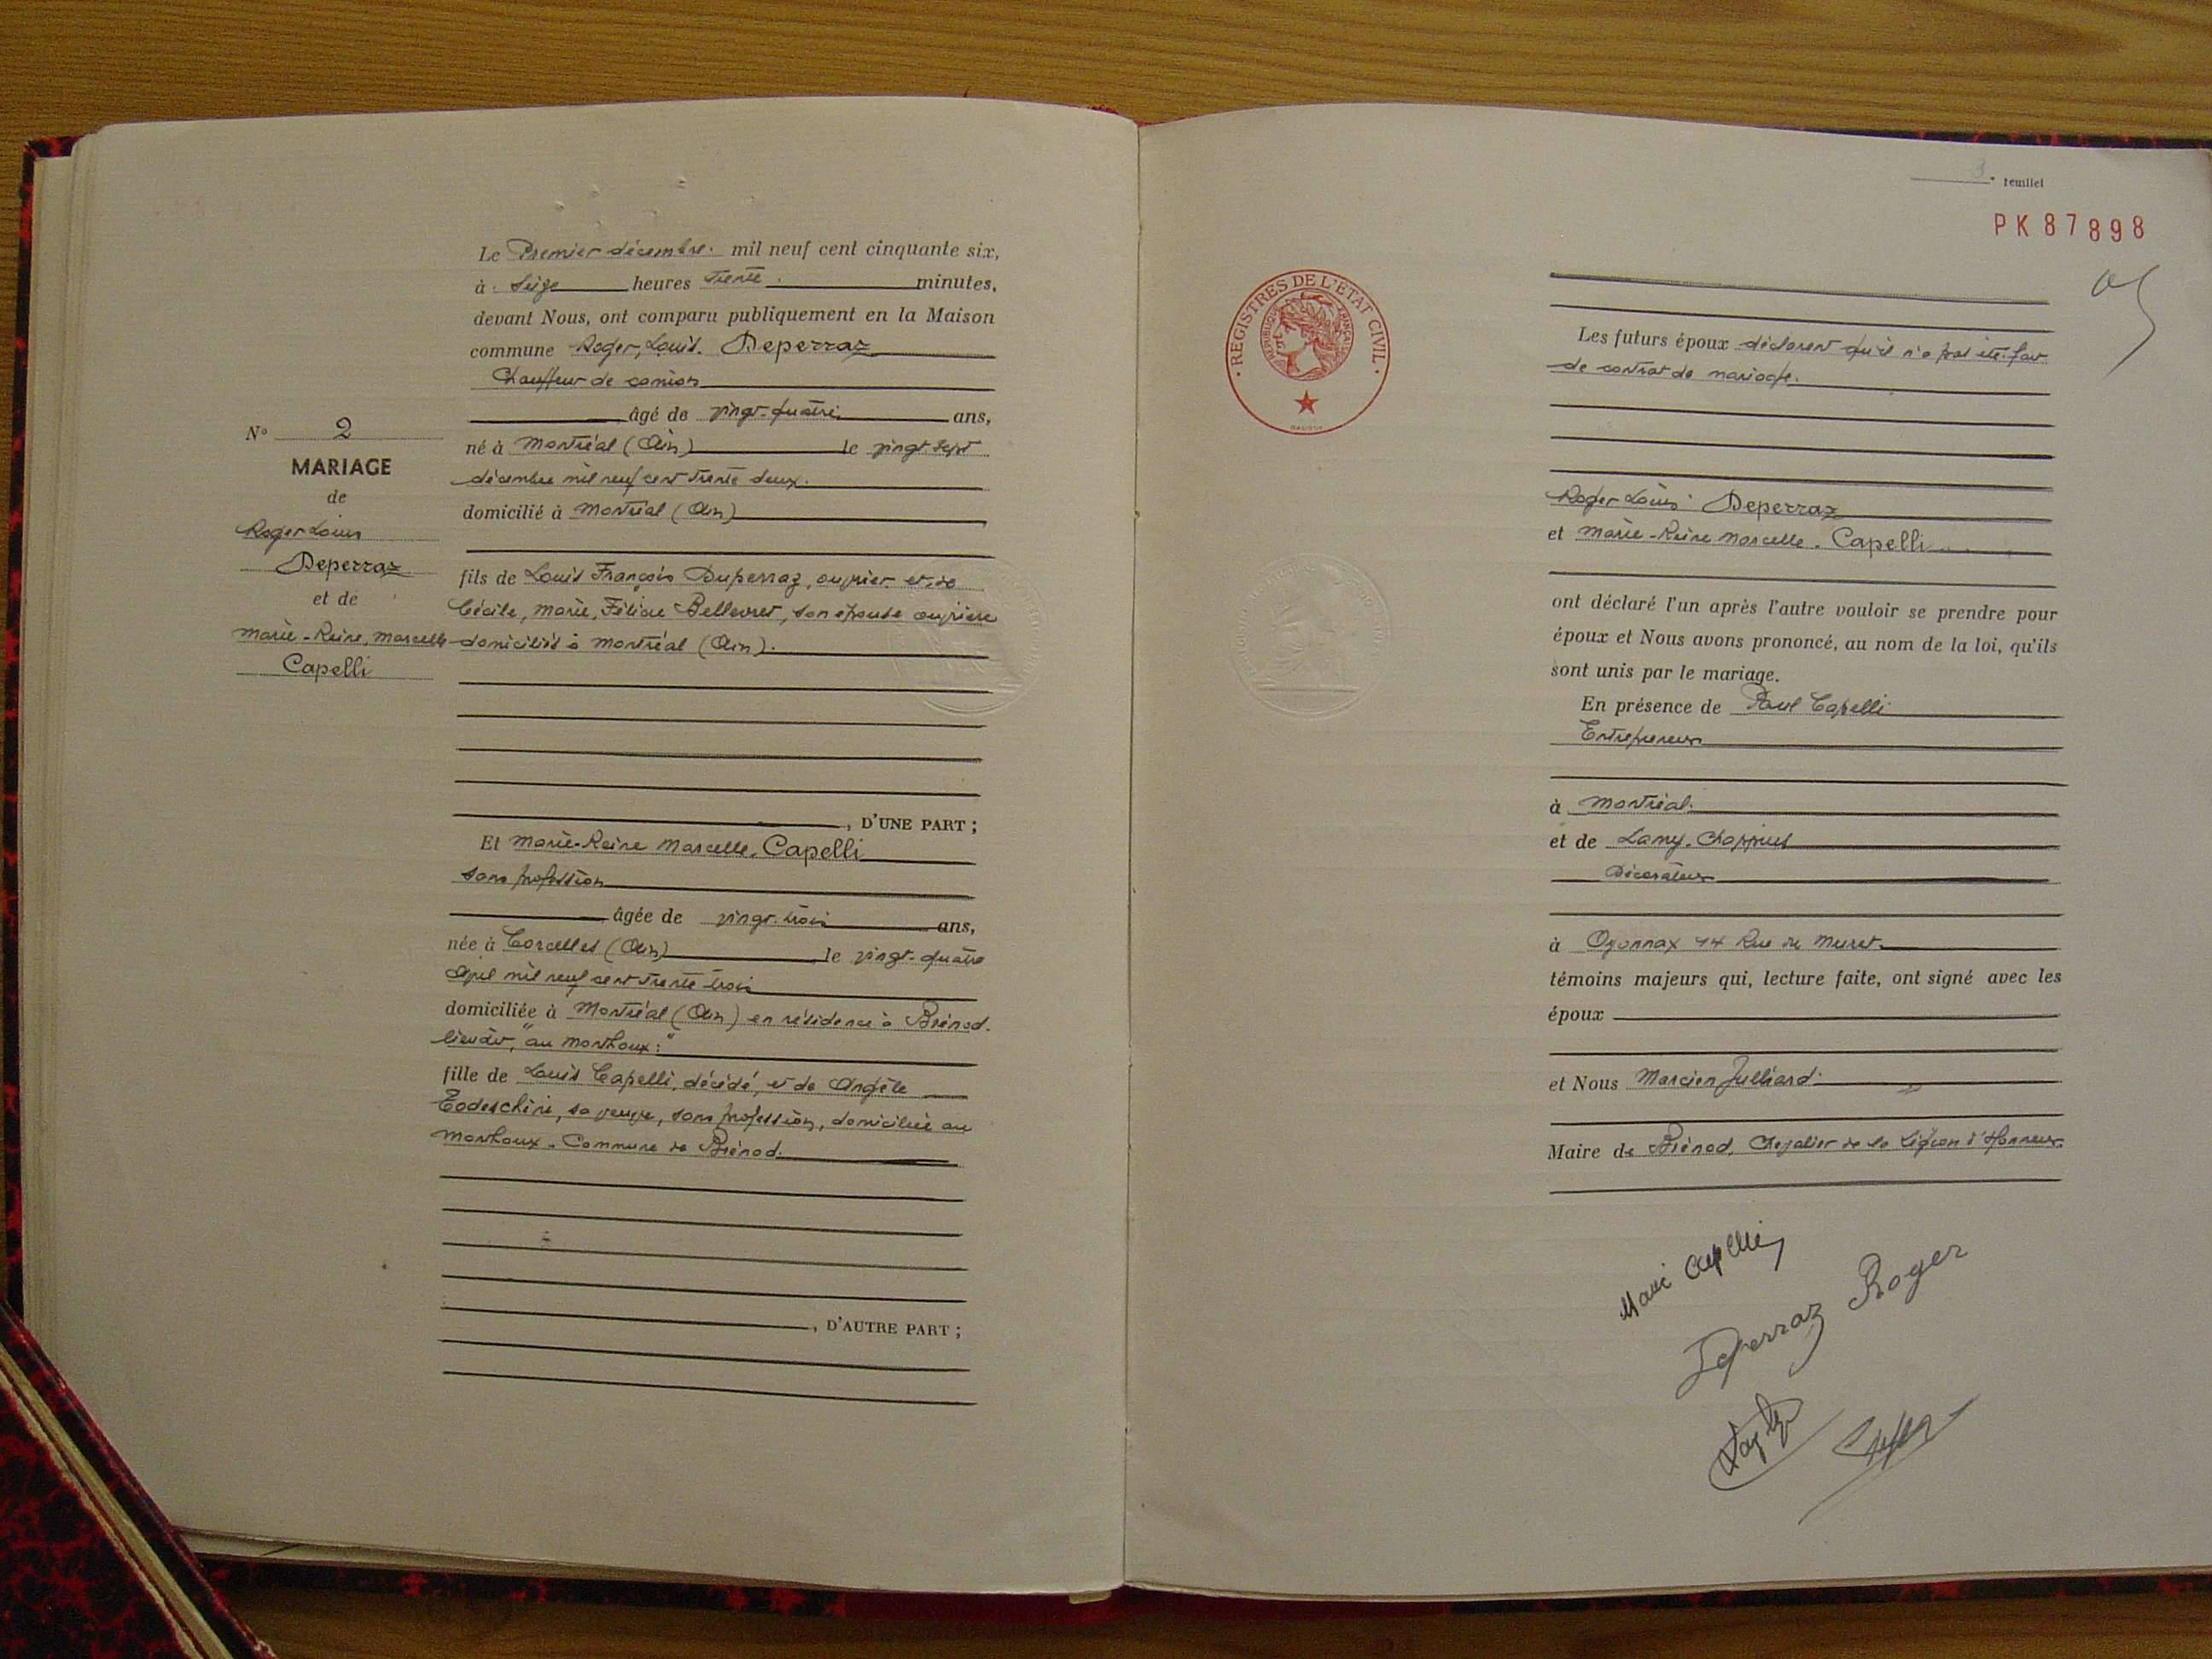 Le Premier décembre. mil neuf cent cinquante six,
à Seize heures trente minutes,
devant Nous, ont comparu publiquement en la Maison
commune Roger, Louis. Deperraz
Chauffeur de camion
âgé de vingt-quatre ans,
né à Montréal (Ain) le vingt-sept
décembre mil neuf cent trente deux.
domicilié à Montréal (Ain)
N° 2
MARIAGE
de
Roger Louis
Deperraz
et de
Marie-Reine, Marcelle
Capelli
fils de Louis François Duperraz, ouvrier et de
Cécile, Marie, Félicie son épouse ouvrière
domiciliés à Montréal (Ain).
, D'UNE PART ;
Et Marie-Reine Marcelle. Capelli
sans profession
âgée de vingt-trois ans,
née à Corcelles (Ain) le vingt-quatre
Avril mil neuf cent trente trois
domiciliée à Montréal (Ain) en résidence à Brénod.
lieudit, "au Monthoux:"
fille de Louis Capelli, décédé, et de Angèle
Todeschini, sa veuve, sans profession, domiciliée au
Monthoux. Commune de Brénod.
, D'AUTRE PART ;
3e feuillet
PK 87898
REGISTRES DE L'ÉTAT CIVIL
RÉPUBLIQUE FRANÇAISE
Les futurs époux déclarent qu'il n'a pas été fait
de contrat de mariage.
Roger Louis Deperraz
et Marie-Reine Marcelle. Capelli
ont déclaré l'un après l'autre vouloir se prendre pour
époux et Nous avons prononcé, au nom de la loi, qu'ils
sont unis par le mariage.
En présence de Paul Capelli
Entrepreneur
à Montréal.
et de Lamy. Chappuis
Décorateur
à Oyonnax 14 Rue de
témoins majeurs qui, lecture faite, ont signé avec les
époux
et Nous Marcien Julliard
Maire de Brénod, Chevalier de la Légion d'Honneur.
Marie Capelli
Deperraz Roger